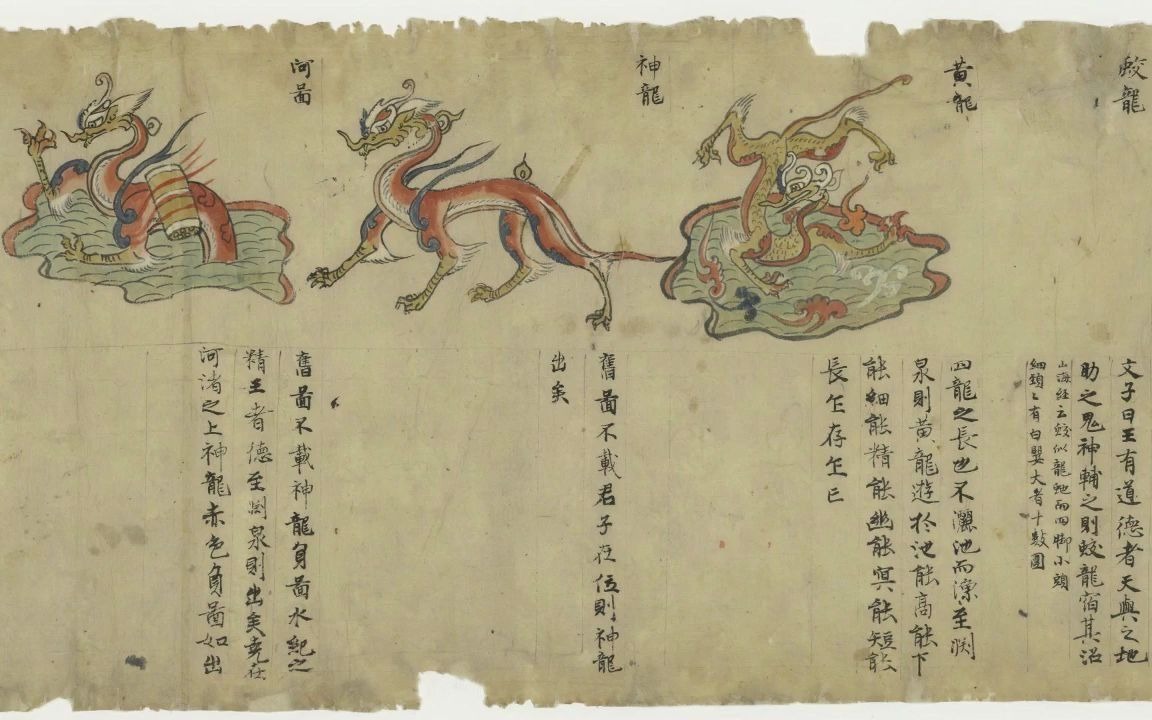 蛟龍
文子曰王有道德者天與之地
助之鬼神輔之則蛟龍宿其沼
山海經云蛟似龍虵而四脚小頭
細頸々有白嬰大者十數圍
黃龍
四龍之長也不漉池而漁至渕
泉則黃龍遊於池能高能下
能細能精能幽能冥能短能
長乍存乍亡
神龍
舊啚不載君子在位則神龍
出矣
河啚
舊啚不載神龍負啚水紀之
精王者德至渕泉則出矣堯在
河渚之上神龍赤色負啚如出